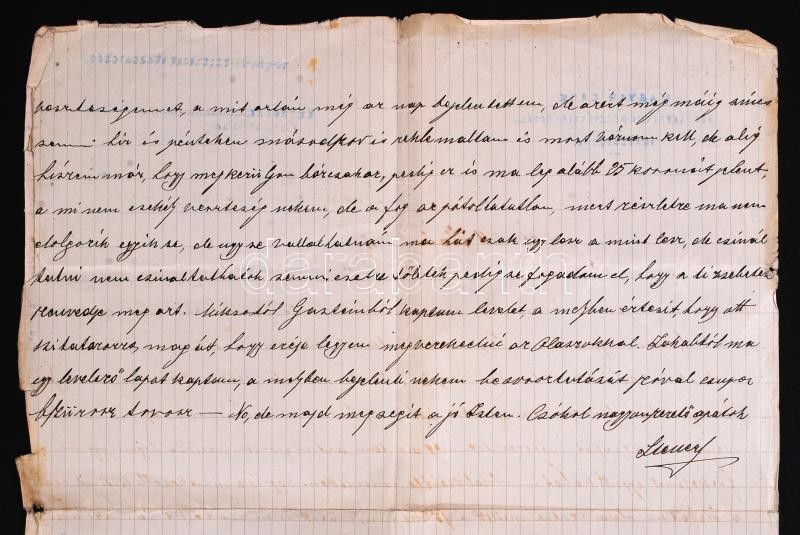 veszteségemet, a mit aztán még az nap bejelentettem, de azért még máig sincs
semmi hír és pénteken másodszor is reklamáltam és most várnom kell, de alig
hiszem már, hogy megkerüljön bárcsakar, pedig ez is ma legalább 25 koronát jelent,
a mi nem csekély veszteség nekem, de a fog az pótoltatlan, mert részletre ma nem
dolgozik egyik se, de ugy se vállaltatnám ma hát csak ugy lesz a mint lesz, de csinál
tatni nem csináltathatok semmi esetre többek pedig se fogadom el, hogy a ti zsebetek
szenvedje meg azt. Miksától Gasteinból kaptam levelet, a melyben értesit, hogy ott
kitatarozza magát, hogy ereje legyen megverekedni az Olaszokkal. Jakabtól ma
egy levelező lapot kaptam, a melyben bejelenti nekem bevonultatását jóval
No, de majd megsegit a jó Isten. Csókol nagyonszerető apátok
darabanth